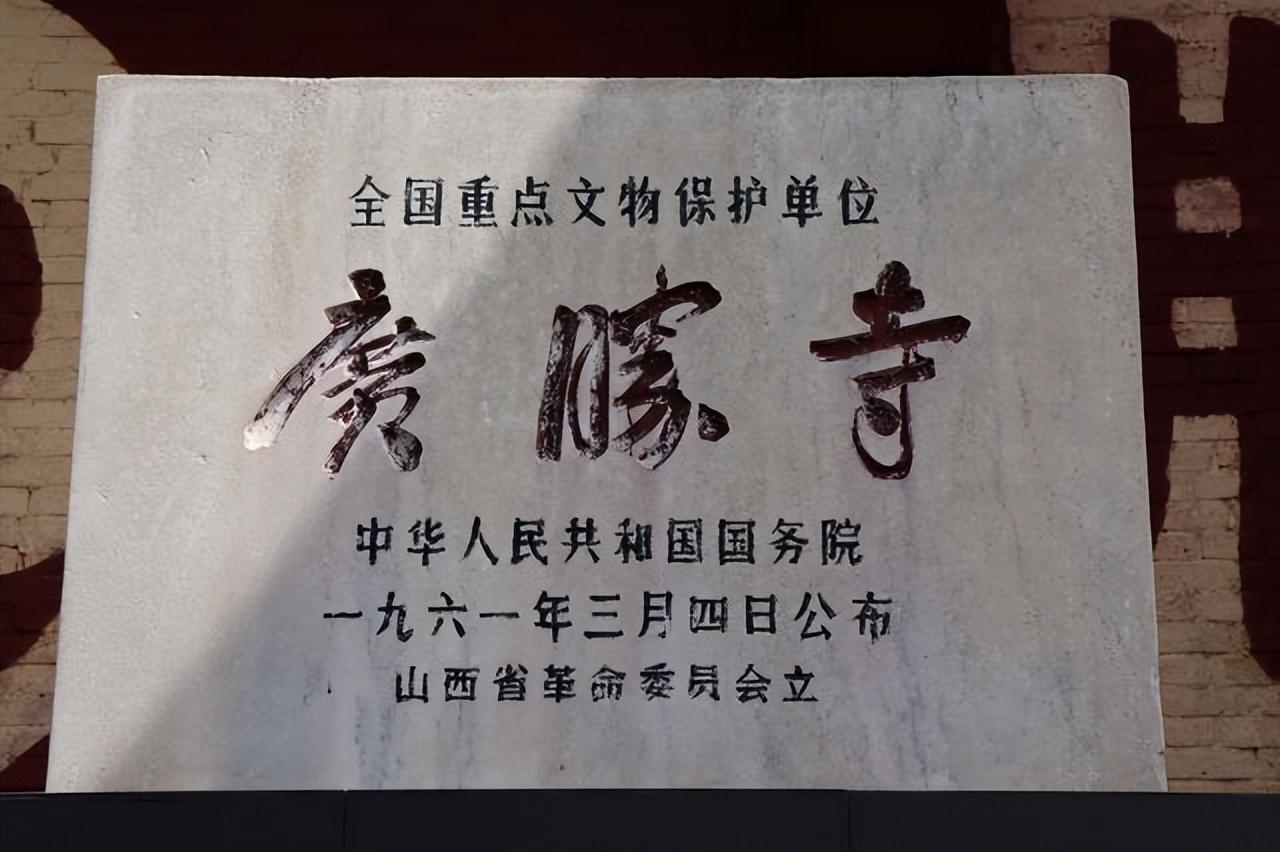 全国重点文物保护单位
廣勝寺
中华人民共和国国务院
一九六一年三月四日公布
山西省革命委员会立